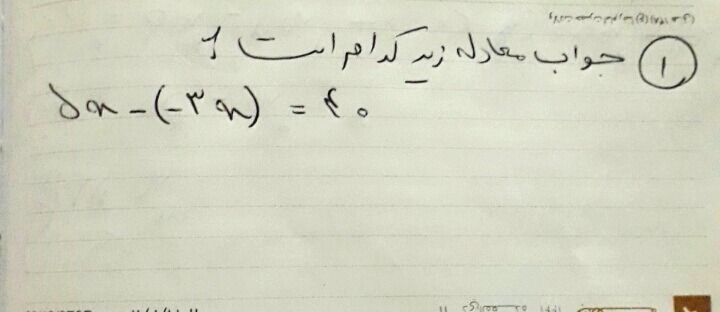 ۱ جواب معادله زیر کدام است ؟
۵x - (-۳x) = ۴۰